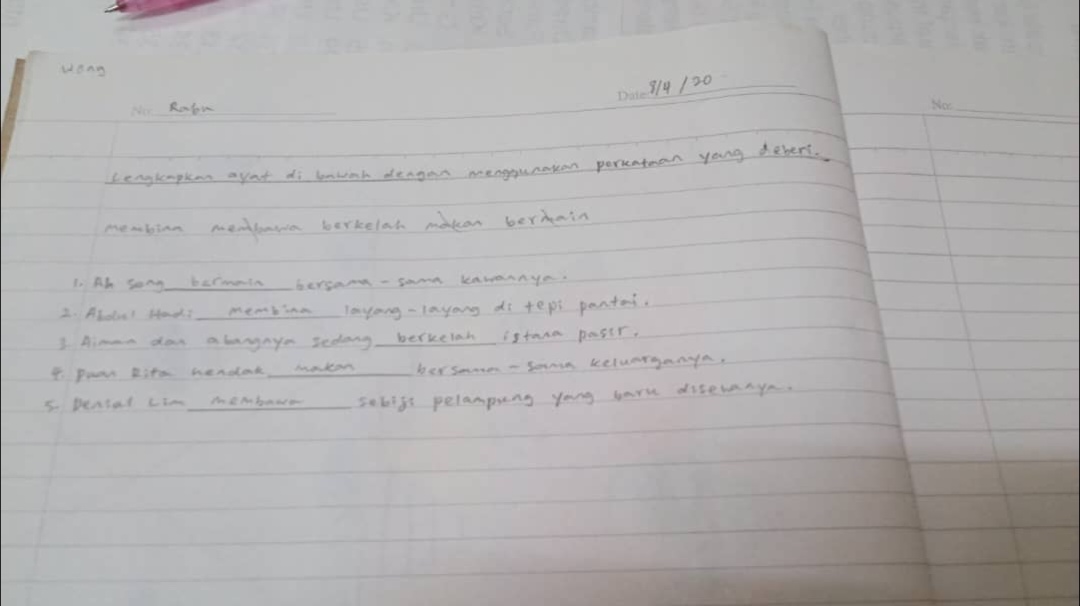 Wong
No: Rabu
Date: 8/4/20
No:
Lengkapkan ayat di bawah dengan menggunakan perkataan yang deberi.
membina membawa berkelah makan bermain
1. Ah Song bermain bersama-sama kawannya.
2. Abdul Hadi membina layang-layang di tepi pantai.
3. Aiman dan abangnya sedang berkelah istana pasir.
4. Puan Rita hendak makan bersama-sama keluarganya.
5. Denial Lim membawa sebiji pelampung yang baru disewanya.